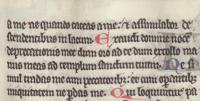 a me ne quando taceas a me: et assimilabor de
scendentibus in lacum Exaudi domine uoce
deprecationis mee dum oro ad te dum extollo ma
nus meas ad templum sanctum tuum Ne si
mul tradas me cum peccatoribus: et cum operantibus
iniquitatem ne perdas me. Qui loquuntur pa